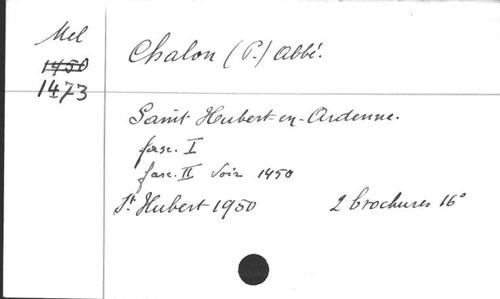 Mel
1450
1473
Chalon (P.) Abbé.
Saint Hubert-en-Ardenne.
fasc. I
fasc. II Voir 1450
St Hubert 1950 2 brochures 16°